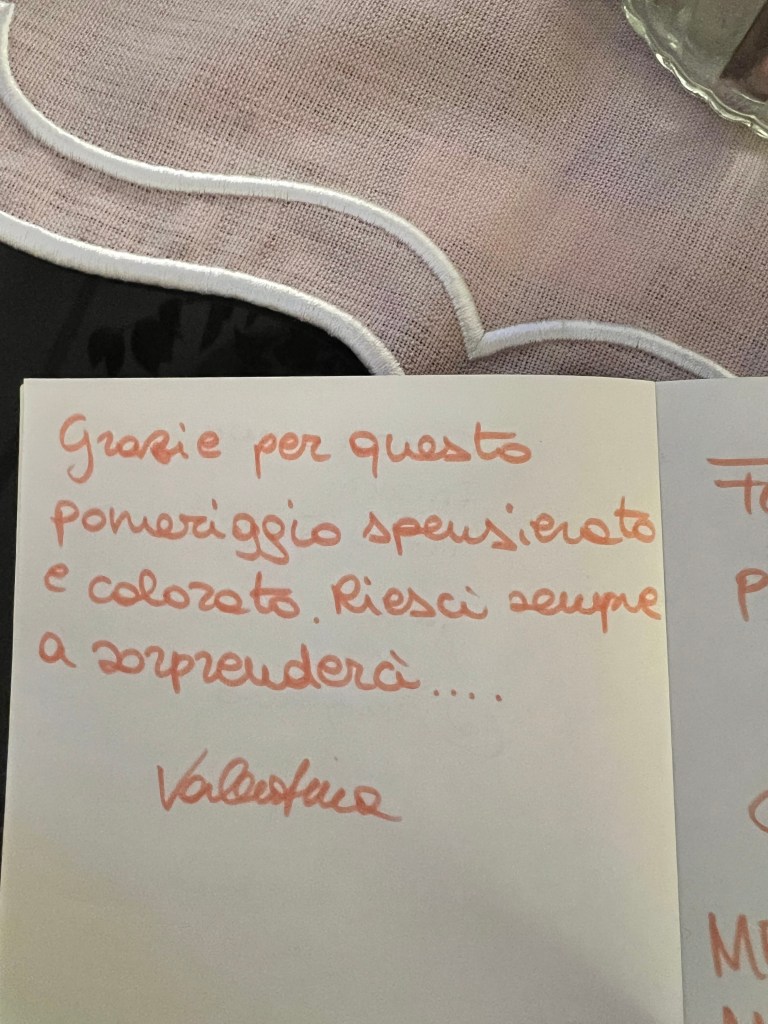 Grazie per questo
pomeriggio spensierato
e colorato. Riesci sempre
a sorprenderci....
Valentina
P